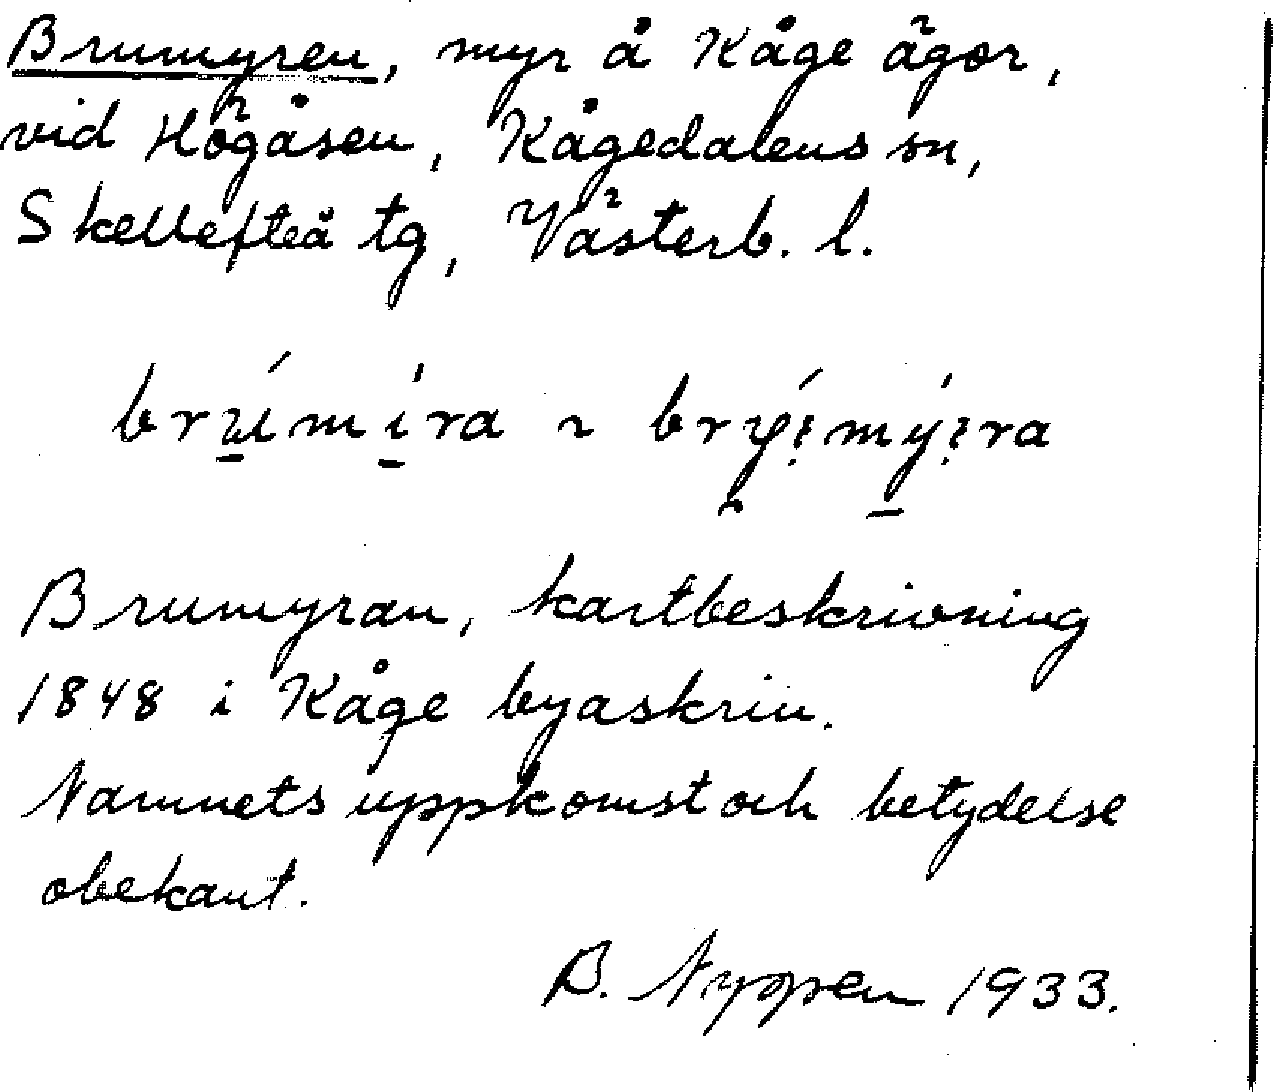 Brumyren, myr å Kåge ägor,
vid Högåsen, Kågedalens sn,
Skellefteå tg, Västerb. l.
Brumyran, kartbeskrivning
1848 i Kåge byaskrin.
Namnets uppkomst och betydelse
obekant.
B. 1933.